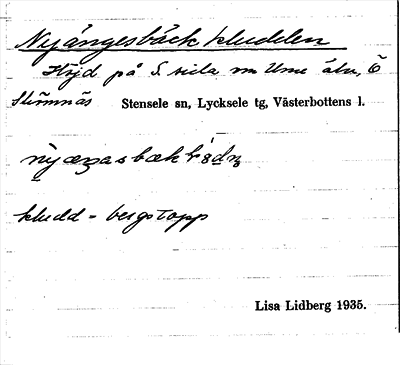 Nyängesbäckkludden
Höjd på S. sida om Ume älv, Ö
Slussnäs Stensele sn, Lycksele tg, Västerbottens l.
kludd = bergstopp
Lisa Lidberg 1935.